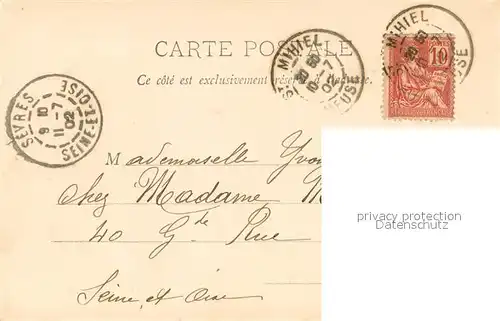 CARTE POSTALE
Ce côté est exclusivement réservé à l'adresse.
ST MIHIEL
20 50
10-7
02
MEUSE
MIHIEL
20 50
10
SÈVRES
9 10
11-7
02
SEINE-ET-OISE
Mademoiselle Yvo
Chez Madame M
40 Gde Rue
Seine et Oise
privacy protection
Datenschutz